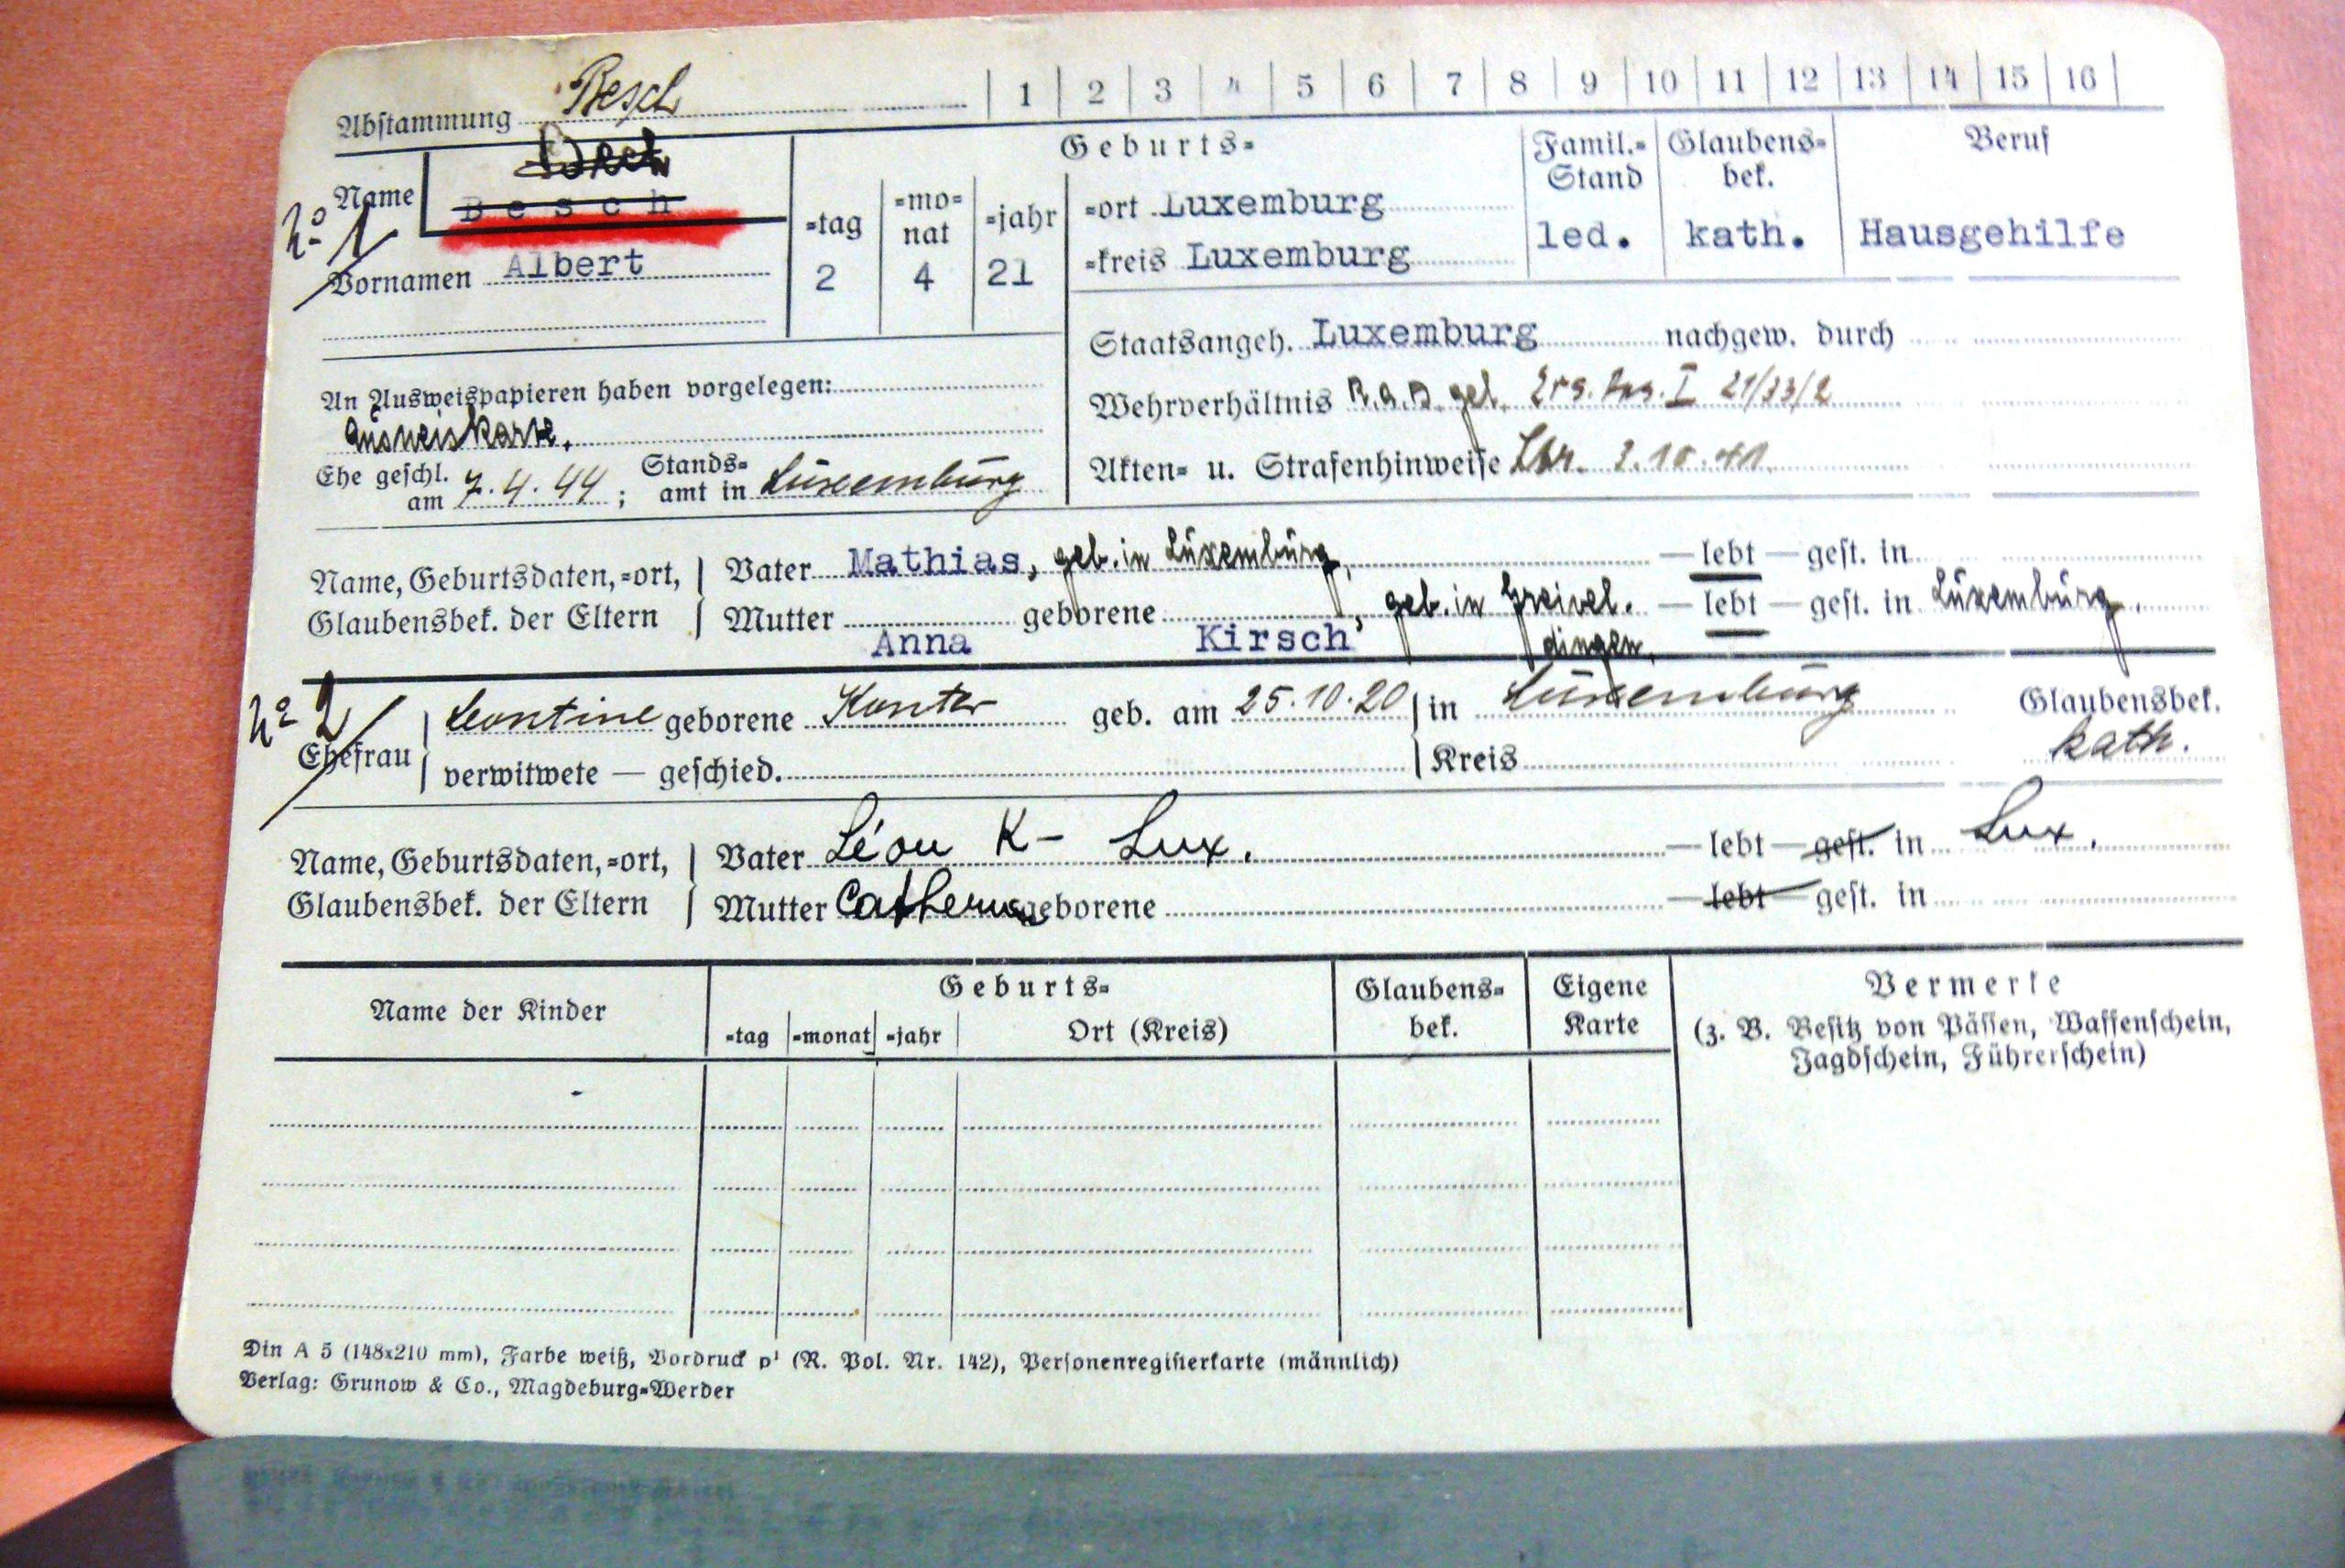 Abstammung Besch 1 2 3 4 5 6 7 8 9 10 11 12 13 14 15 16
Name Besch
Nº 1
Vornamen Albert
Geburts=
=tag =mo=nat =jahr =ort Luxemburg
2 4 21 =kreis Luxemburg
Famil.=Stand Glaubens=bek. Beruf
led. kath. Hausgehilfe
Staatsangeh. Luxemburg nachgew. durch
Wehrverhältnis R.A.D. gel. Ers. Res. I 21/33/2
Akten= u. Strafenhinweise 2.10.41
An Ausweispapieren haben vorgelegen:
Ausweiskarte.
Ehe geschl. am 7.4.44; Stands=amt in Luxemburg
Name, Geburtsdaten,=ort, Glaubensbek. der Eltern
Vater Mathias, geb. in Luxemburg, — lebt — gest. in
Mutter Anna geborene Kirsch, geb. in Greivel.dingen. — lebt — gest. in Luxemburg.
Nº 2
Ehefrau Leontine geborene Konter geb. am 25.10.20 in Luxemburg Glaubensbek.
verwitwete — geschied. Kreis kath.
Name, Geburtsdaten,=ort, Glaubensbek. der Eltern
Vater Léon K— Lux. — lebt — gest. in Lux.
Mutter geborene — lebt — gest. in
Name der Kinder Geburts= Glaubens=bek. Eigene Karte Vermerke
=tag =monat =jahr Ort (Kreis) (z. B. Besitz von Pässen, Waffenschein,
Jagdschein, Führerschein)
Din A 5 (148x210 mm), Farbe weiß, Vordruck p¹ (R. Pol. Nr. 142), Personenregisterkarte (männlich)
Verlag: Grunow & Co., Magdeburg=Werder